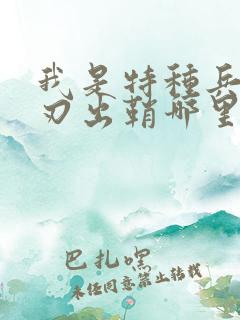 我是特种兵
刃出鞘哪里
巴扎嘿
未经同意禁止转载